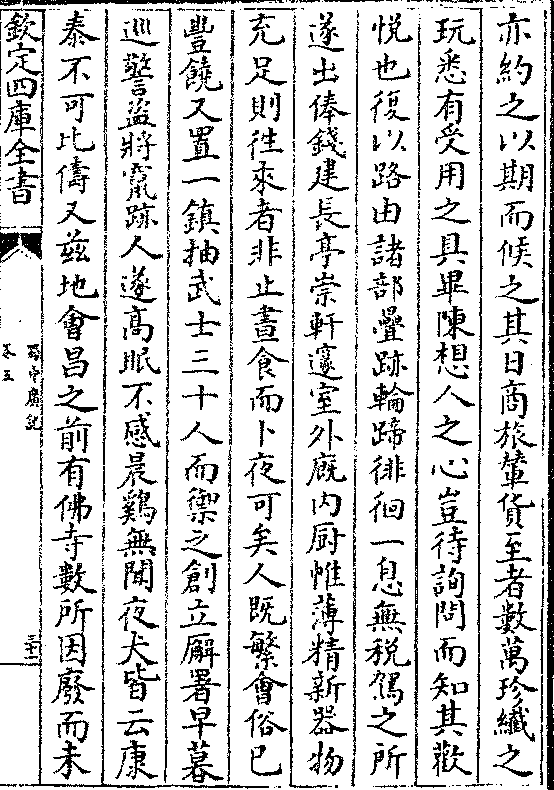 亦約之以期而候之其日商旅輦貨至者數萬珍纖之
玩悉有受用之具畢陳想人之心豈待詢問而知其歡
悅也復以路由諸部疊跡輪蹄徘徊一息無稅駕之所
遂出俸錢建長亭崇軒邃室外廐内厨惟薄精新器物
充足則徃來者非止晝食而卜夜可矣人既繁會俗已
豐饒又置一鎮抽武士三十人而禦之創立廨署早暮
廵警盜將竄跡人遂髙眠不感晨鷄無聞夜犬皆云康
泰不可比儔又兹地會昌之前有佛寺數所因廢而未
欽定四庫全書
蜀中廣記
卷五
三十一